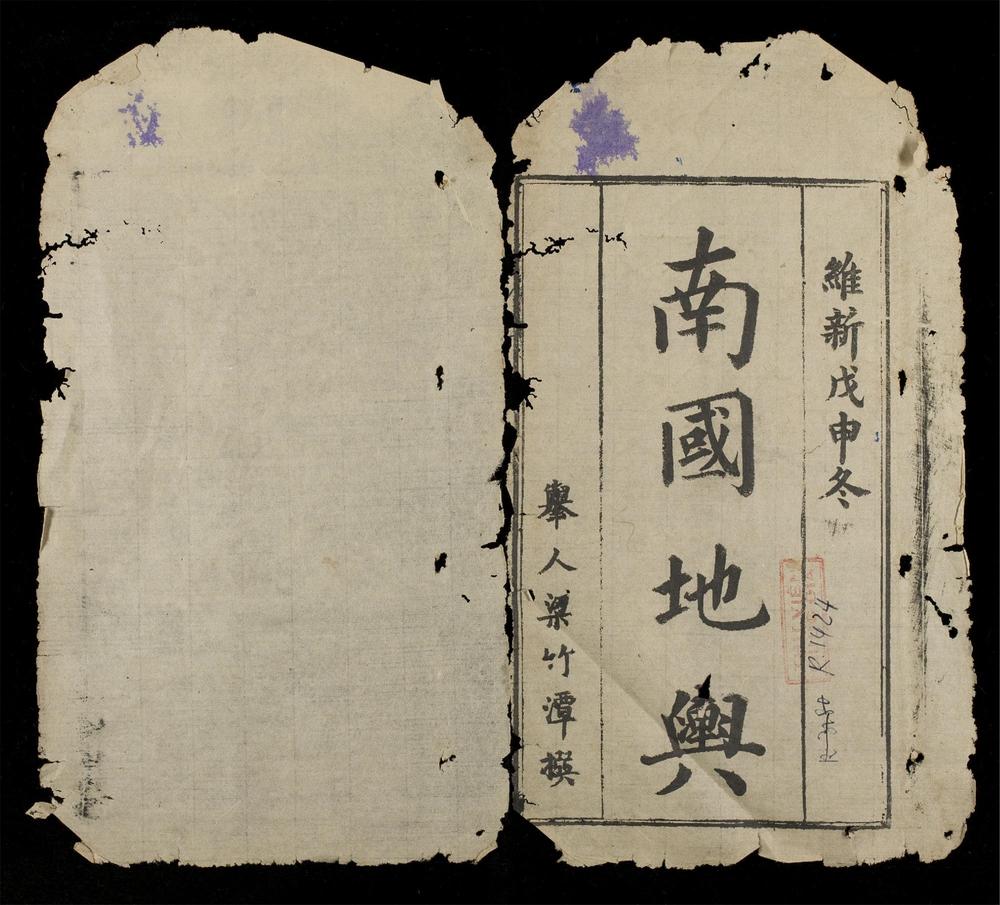 維新戊申冬
南國地輿
舉人梁竹潭撰
R.1424